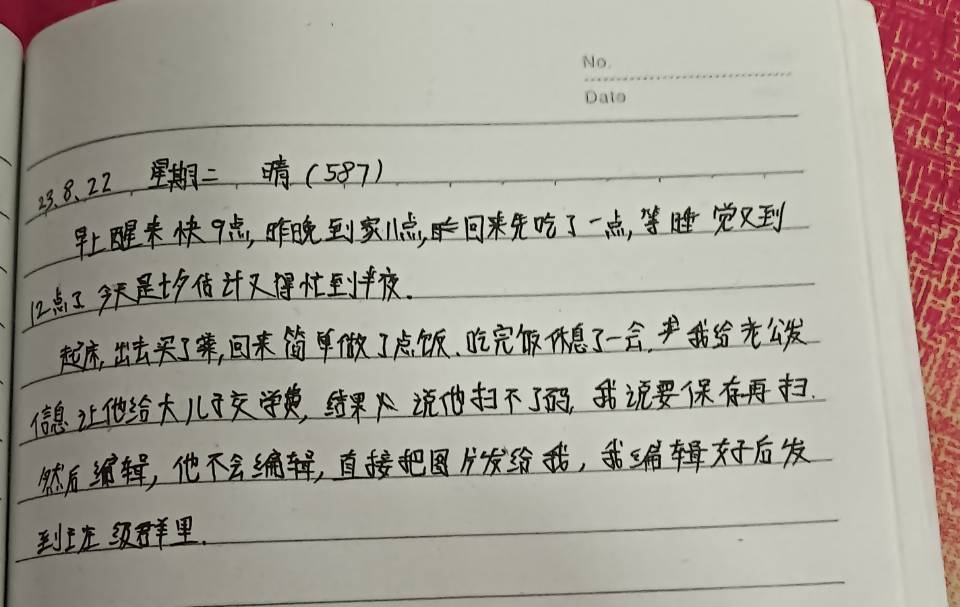 No.
Date
23.8.22 星期二 晴(587)
早上醒来快9点,昨晚到家11点,回来先吃了一点,等睡觉又到
12点了今天是七夕估计又得忙到半夜.
起床,出去买了菜,回来简单做了点饭.吃完饭休息了一会.我给老公发
信息让他给大儿子交学费,结果 说他扫不了码,我说要保存再扫.
然后编辑,他不会编辑,直接把图片发给我,我编辑好后发
到班级群里.